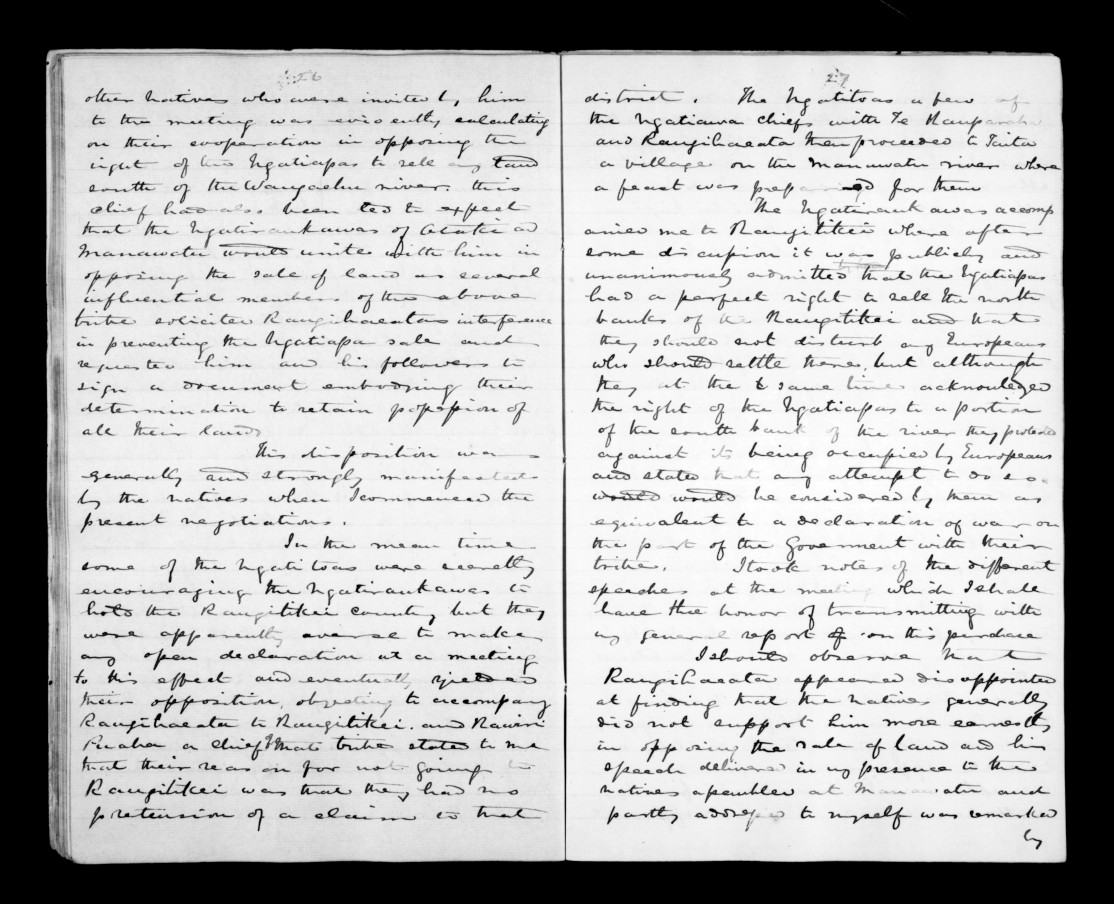 26
other Natives who were invited by him
to the meeting was evidently calculating
on their cooperation in opposing the
right of the Ngatiapas to sell any land
south of the Wangaehu river. this
chief had also been led to expect
that the Ngatiraukawas of Otaki and
Manawatu would unite with him in
opposing the sale of land as several
influential members of the above
tribe solicited Rangihaeatas interference
in preventing the Ngatiapa sale and
requested him and his followers to
sign a document embodying their
determination to retain possession of
all their lands
This disposition was
generally and strongly manifested
by the natives when I commenced the
present negotiations.
In the mean time
some of the Ngatitoas were secretly
encouraging the Ngatiraukawas to
hold the Rangitikei country but they
were apparently averse to make
any open declaration at a meeting
to this effect and eventually
their opposition, objecting to accompany
Rangihaeata to Rangitikei. and Rawiri
Puaha a chief of that tribe stated to me
that their reason for not going to
Rangitikei was that they had no
pretension of a claim to that
27
district. The Ngatitoas a few of
the Ngatiawa chiefs with Te Rauparaha
and Rangihaeata then proceeded to Taita
a village on the Manawatu river where
a feast was prepared for them
The Ngatiraukawas accomp
anied me to Rangitikei where after
some discussion it was publicly and
unanimously admitted that the Ngatiapas
had a perfect right to sell the north
banks of the Rangitikei and that
they should not disturb any Europeans
who should settle there, but although
they at the same time acknowledged
the right of the Ngatiapas to a portion
of the south bank of the river they protested
against its being occupied by Europeans
and stated that any attempt to do so
would would be considered by them as
equivalent to a declaration of war on
the part of the Government with their
tribe. I took notes of the different
speeches at the meeting which I shall
have the honor of transmitting with
my general report of on this purchase
I should observe that
Rangihaeata appeared disappointed
at finding that the natives generally
did not support him more earnestly
in opposing the sale of land and his
speech delivered in my presence to the
natives assembled at Manawatu and
partly addressed to myself was remarked
by